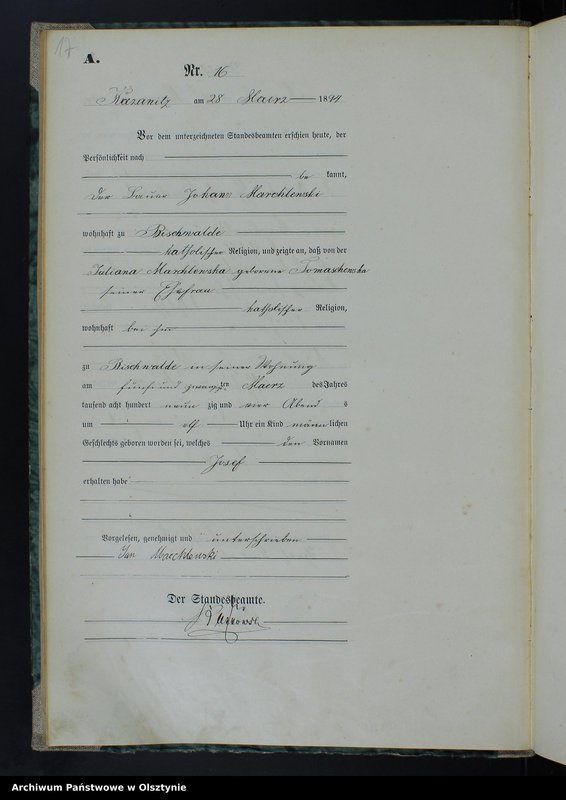 17
A.
Nr. 16
Kazanitz am 28 Maerz 1894
Vor dem unterzeichneten Standesbeamten erschien heute, der
Persönlichkeit nach
be kannt,
der Bauer Johann Marchlewski
wohnhaft zu Bischwalde
katholischer Religion, und zeigte an, daß von der
Juliana Marchlewska geborene Tomaschewska
seiner Ehefrau
katholischer Religion,
wohnhaft bei ihm
zu Bischwalde in seiner Wohnung
am fünf und zwanzigsten Maerz des Jahres
tausend acht hundert neun zig und vier Abend s
um elf Uhr ein Kind männ lichen
Geschlechts geboren worden sei, welches den Vornamen
Josef
erhalten habe
Vorgelesen, genehmigt und unterschrieben
Jan Marchlewski
Der Standesbeamte.
Archiwum Państwowe w Olsztynie